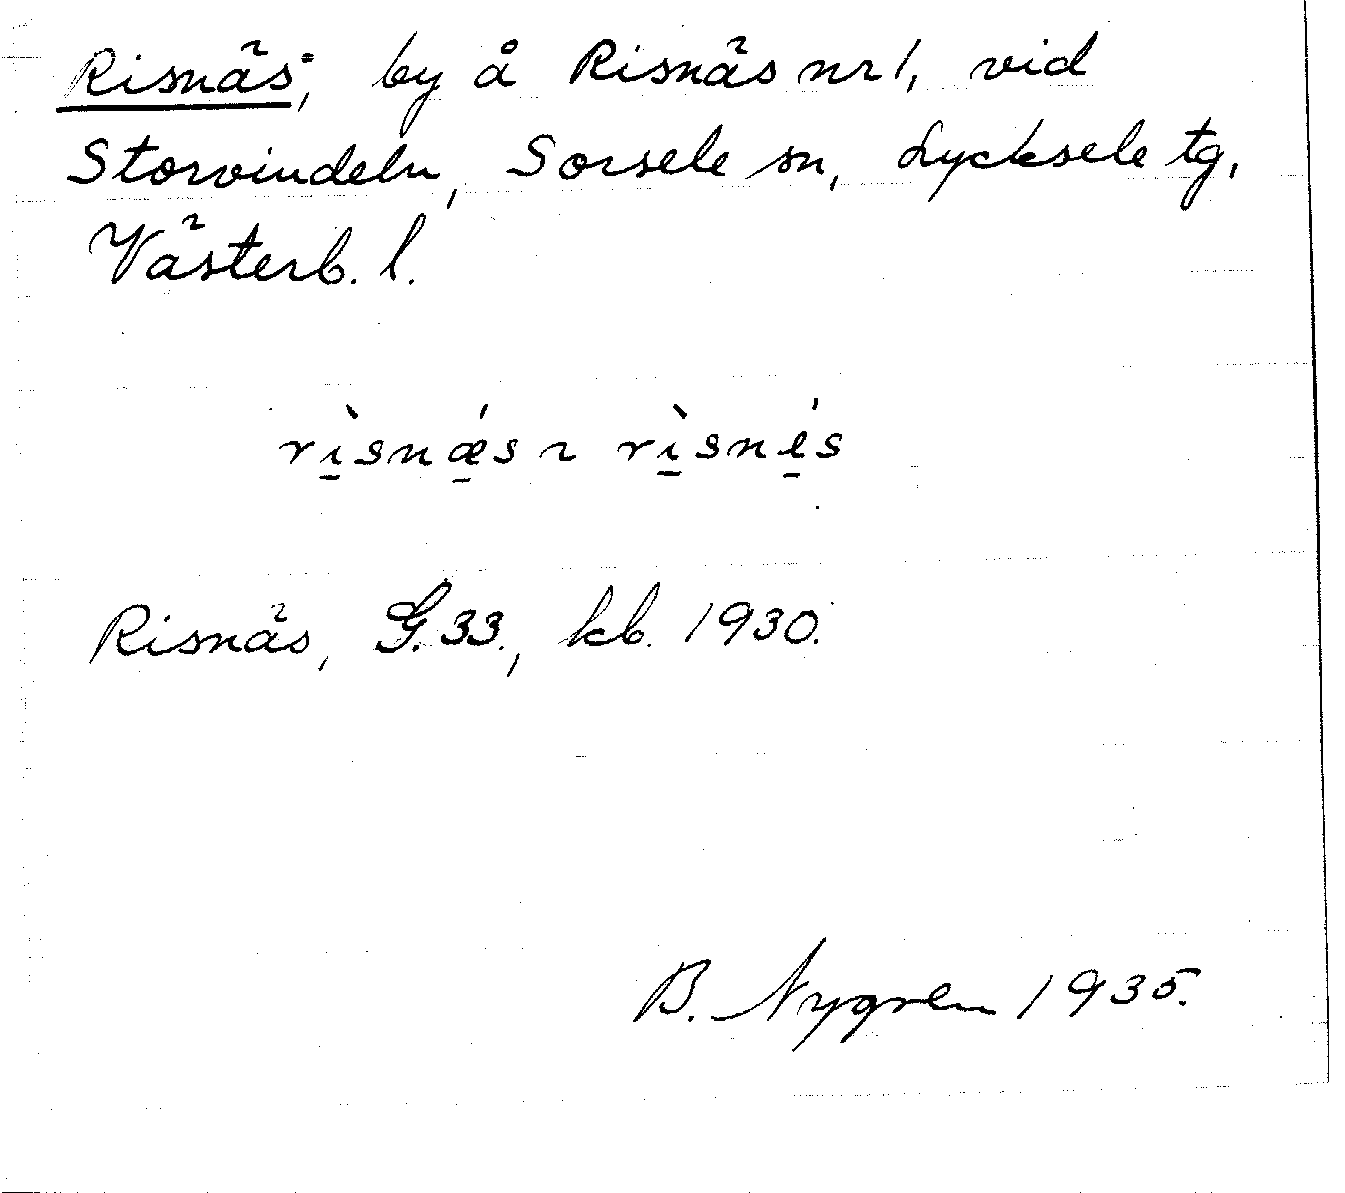 Risnäs, by å Risnäs nr 1, vid
Storvindeln, Sorsele sn, Lycksele tg,
Västerb. l.
rı̠̀snǽ̠s ~ rı̠̀sné̠s
Risnäs, G. 33., kb. 1930.
B. Nygren 1935.